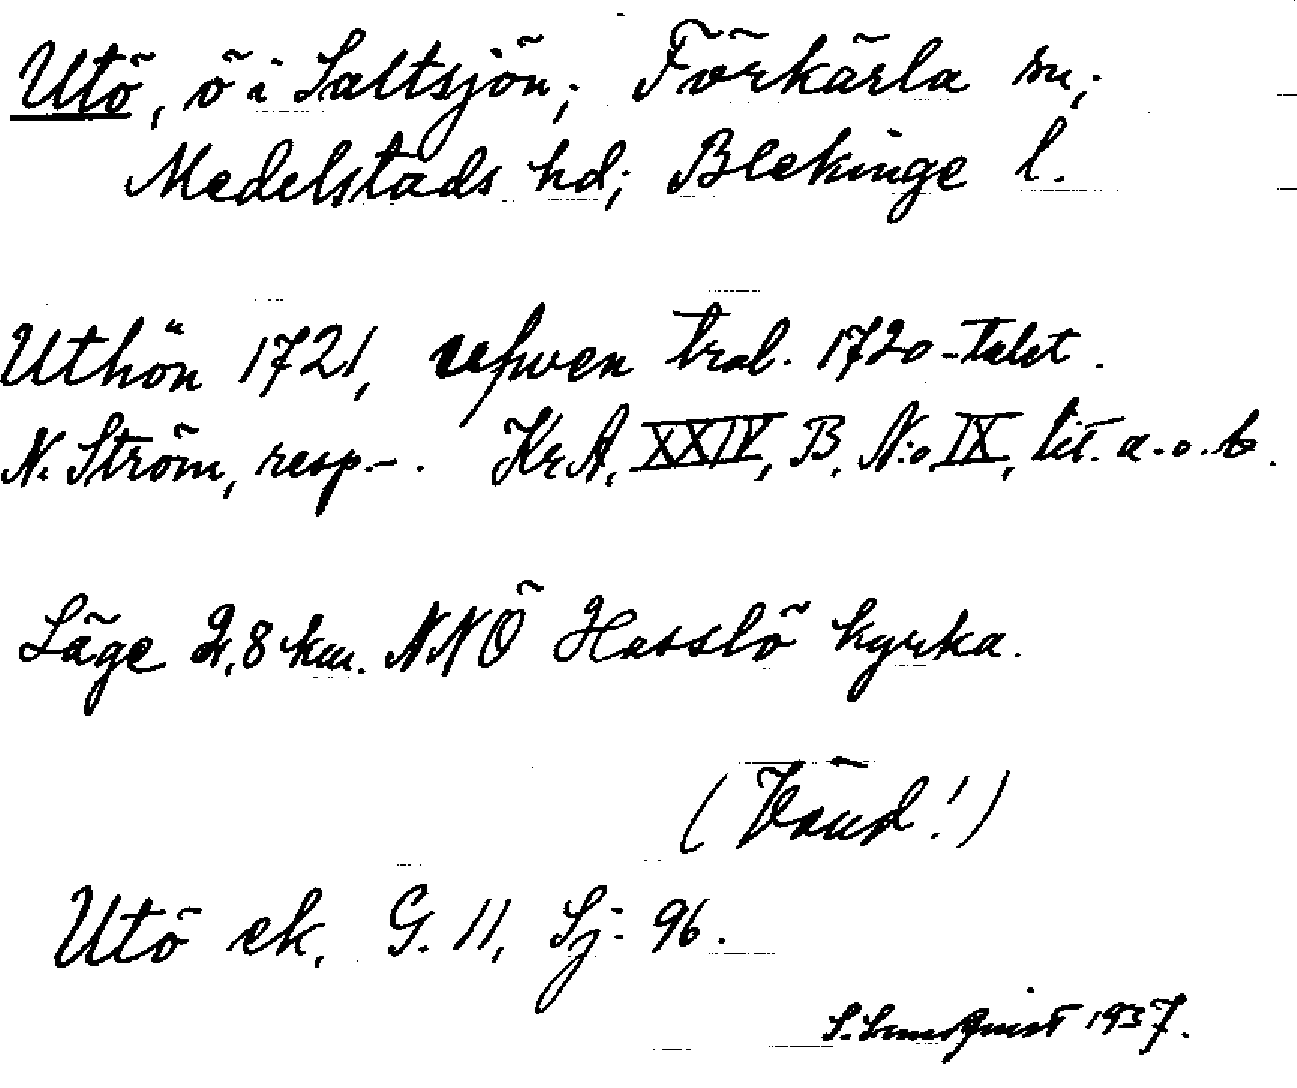 Utö, ö i Saltsjön; Förkärla sn;
Medelstads hd; Blekinge l.
Uthön 1721, även trol. 1720-talet.
N. Ström, resp.-. KrA, XXIV, B, N:o IX, lit. a. o. b.
Läge 2,8 km. NNÖ Hasslö kyrka.
(Vänd!)
Utö ek. G. 11, Sj. 96.
S. Lundquist 1937.